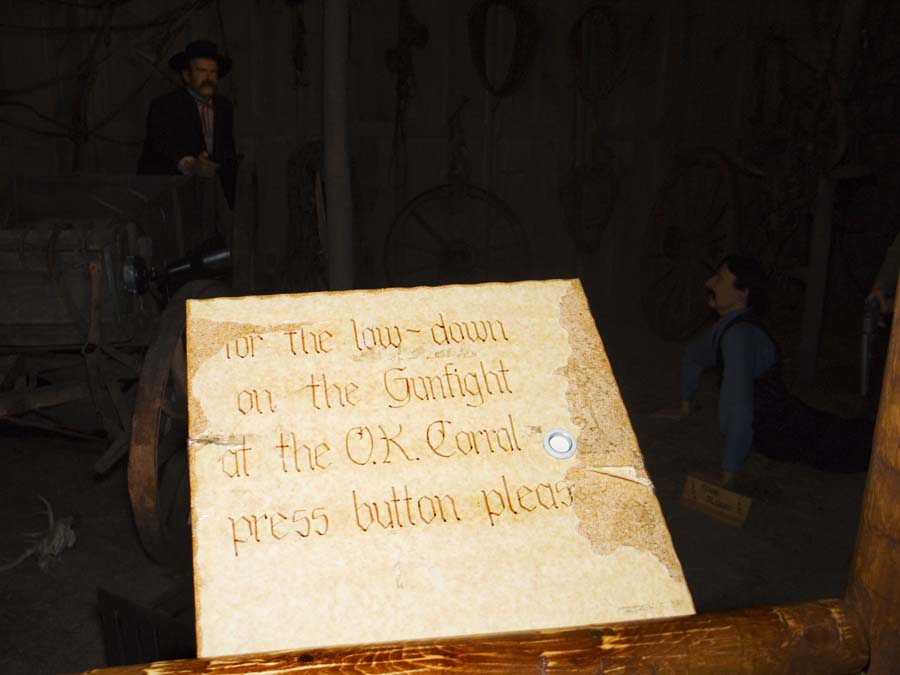 for the low-down
on the Gunfight
at the O.K. Corral
press button pleas